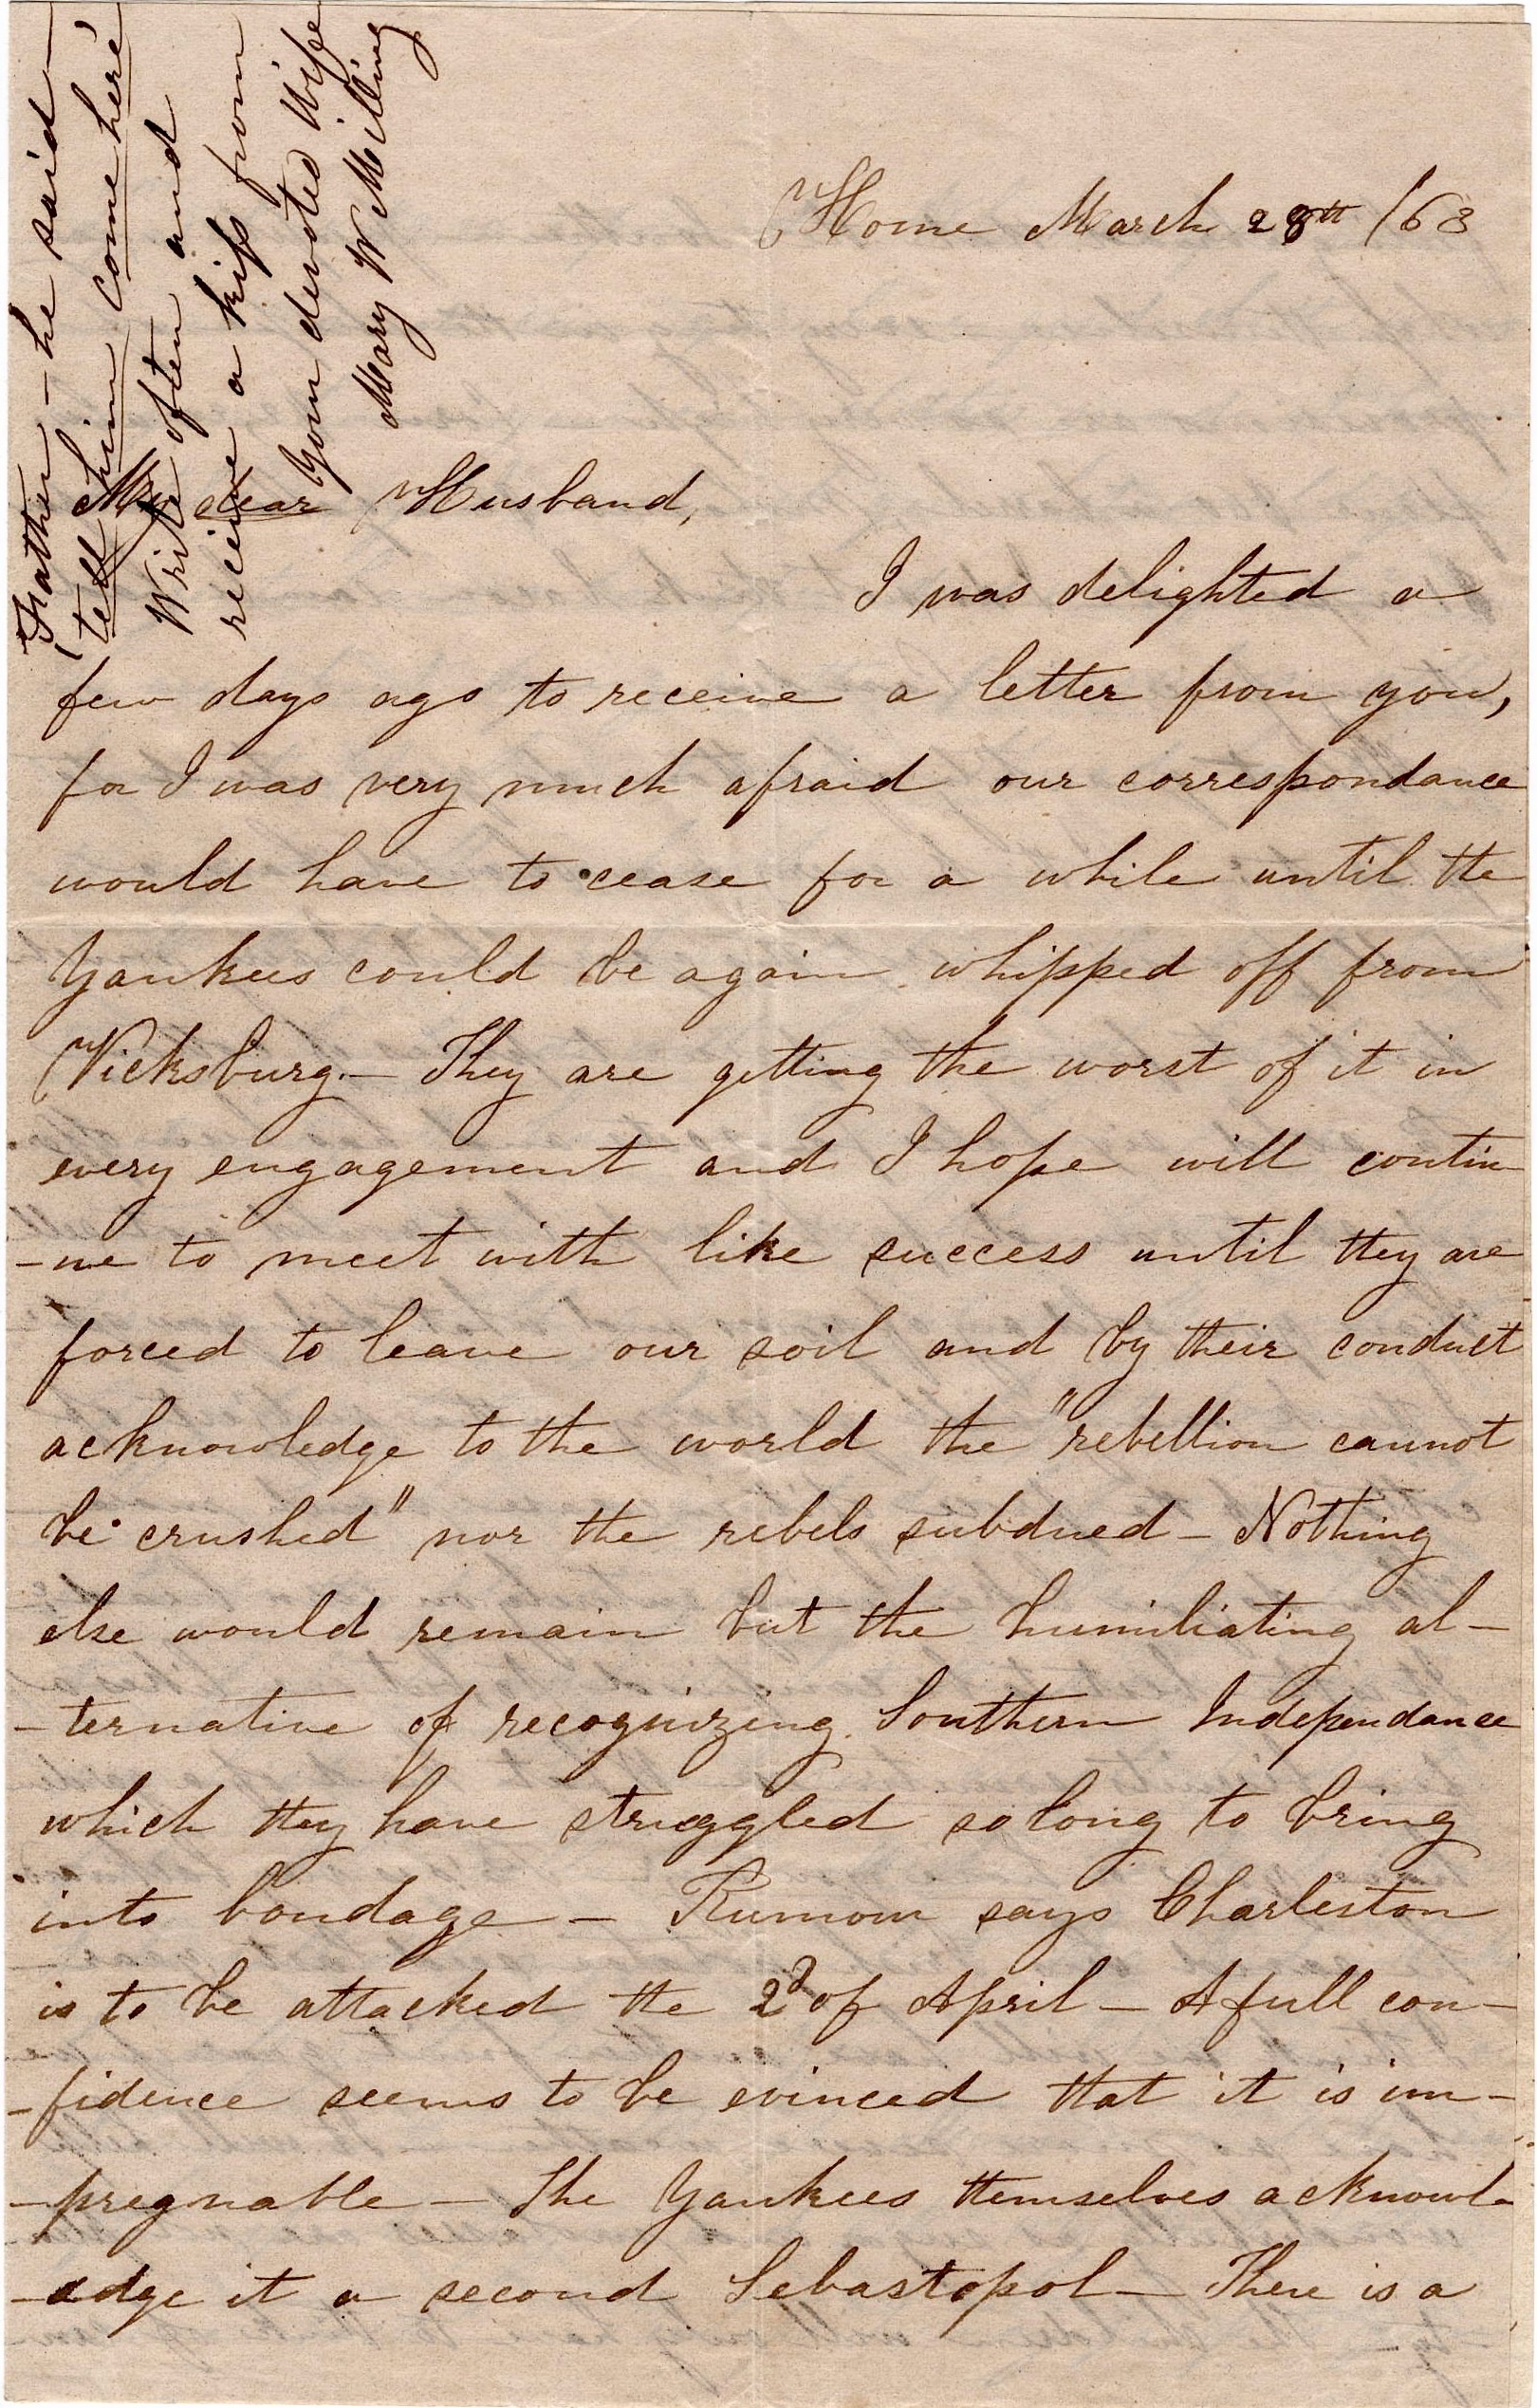 Home March 28th /63
My dear Husband,
I was delighted a
few days ago to receive a letter from you,
for I was very much afraid our correspondance
would have to cease for a while until the
Yankees could be again whipped off from
Vicksburg.— They are getting the worst of it in
every engagement and I hope will contin-
-ue to meet with like success until they are
forced to leave our soil and by their conduct
acknowledge to the world the "rebellion cannot
be crushed" nor the rebels subdued — Nothing
else would remain but the humiliating al-
-ternative of recognizing Southern Independance
which they have struggled so long to bring
into bondage — Rumour says Charleston
is to be attacked the 2d of April — A full con-
-fidence seems to be evinced that it is im-
-pregnable — The Yankees themselves acknowl-
-edge it a second Sebastopol — There is a
Father — he said —
"tell him come here"
Write often and
receive a kiss from
Your devoted Wife
Mary W Milling